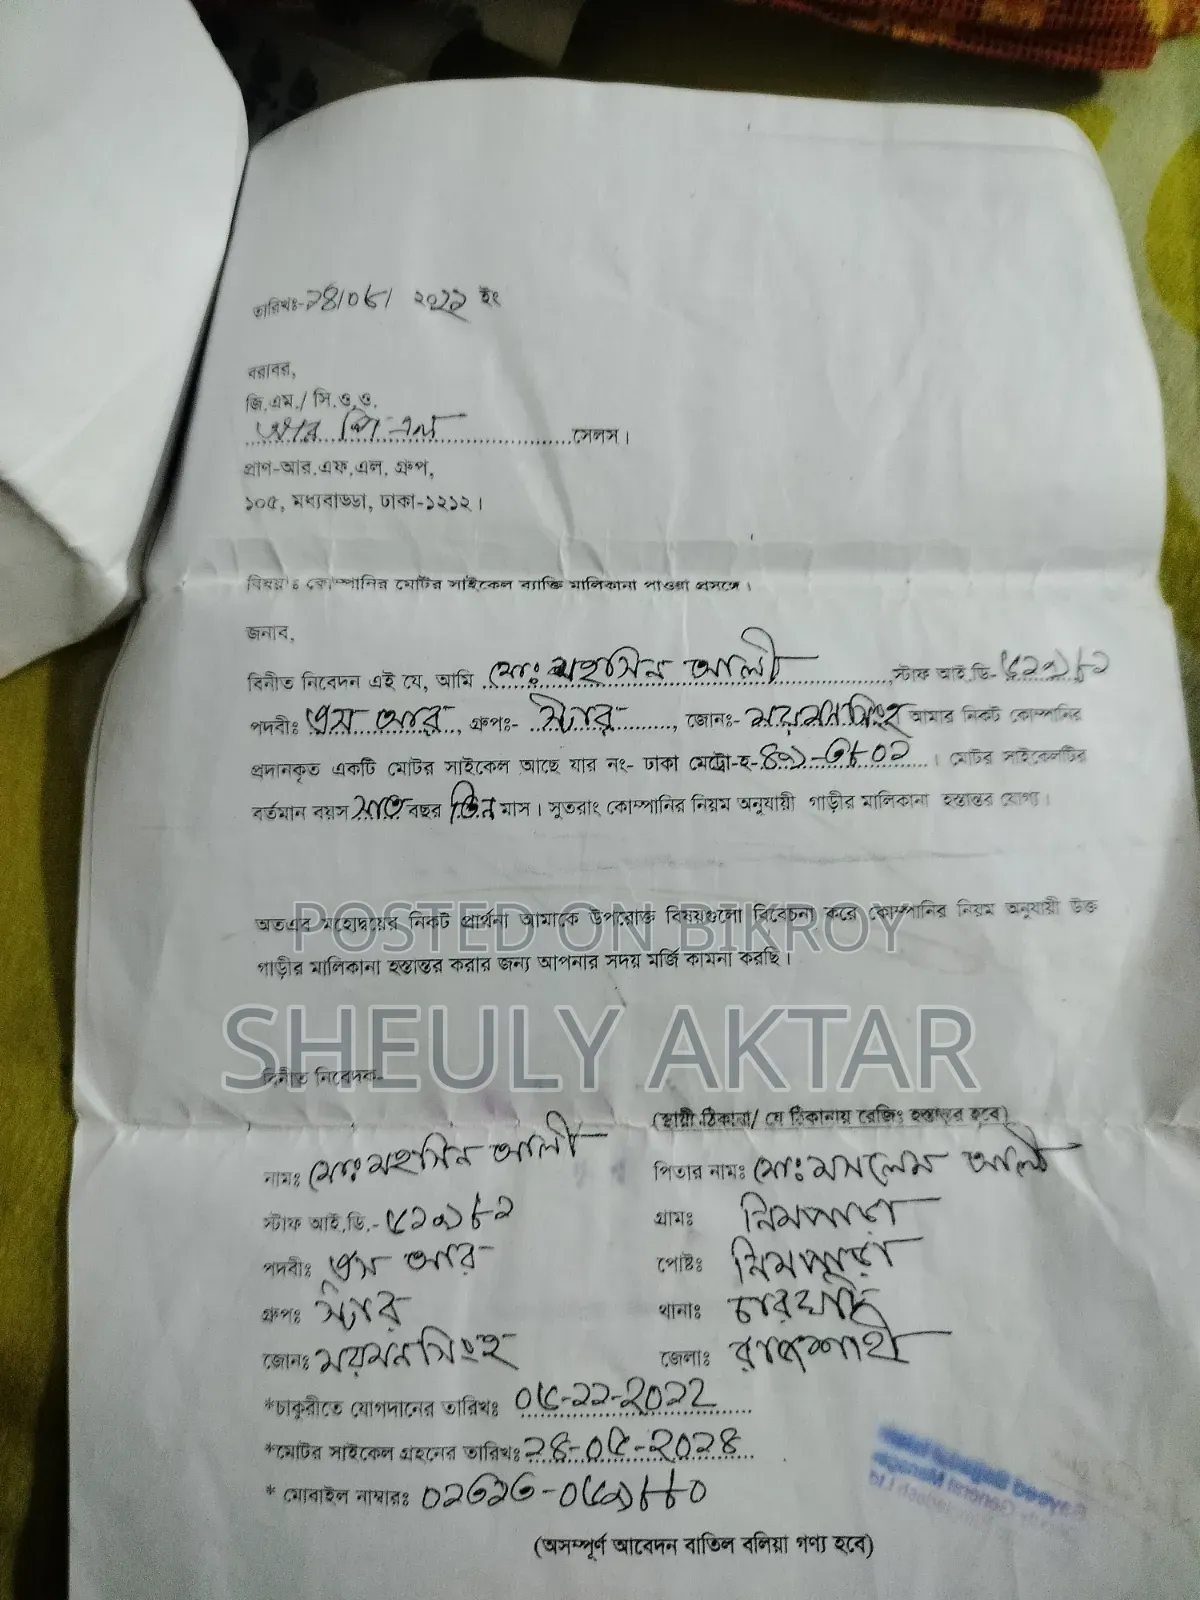 তারিখঃ- ইং
বরাবর,
জি.এম./ সি.ও.ও.
আর পি এল সেলস।
প্রাণ-আর.এফ.এল. গ্রুপ,
১০৫, মধ্যবাড্ডা, ঢাকা-১২১২।
বিষয়ঃ কোম্পানির মোটর সাইকেল ব্যাক্তি মালিকানা পাওয়া প্রসঙ্গে।
জনাব,
বিনীত নিবেদন এই যে, আমি মোঃ মহাসিন আলী স্টাফ আই.ডি-
পদবীঃ এস আর, গ্রুপঃ- স্টার, জোনঃ- ময়মনসিংহ আমার নিকট কোম্পানির
প্রদানকৃত একটি মোটর সাইকেল আছে যার নং- ঢাকা মেট্রো-হ- । মোটর সাইকেলটির
বর্তমান বয়স সাত বছর তিন মাস। সুতরাং কোম্পানির নিয়ম অনুযায়ী গাড়ীর মালিকানা হস্তান্তর যোগ্য।
অতএব মহোদয়ের নিকট প্রার্থনা আমাকে উপরোক্ত বিষয়গুলো বিবেচনা করে কোম্পানির নিয়ম অনুযায়ী উক্ত
POSTED ON BIKROY
গাড়ীর মালিকানা হস্তান্তর করার জন্য আপনার সদয় মর্জি কামনা করছি।
SHEULY AKTAR
বিনীত নিবেদক-
(স্থায়ী ঠিকানা/ যে ঠিকানায় রেজিঃ হস্তান্তর হবে)
নামঃ মোঃ মহাসিন আলী
পিতার নামঃ মোঃ মসলেম আলী
স্টাফ আই.ডি.-
গ্রামঃ নিমপাড়া
পদবীঃ এস আর
পোষ্টঃ নিমপাড়া
গ্রুপঃ স্টার
থানাঃ চারঘাট
জোনঃ ময়মনসিংহ
জেলাঃ রাজশাহী
*চাকুরীতে যোগদানের তারিখঃ
*মোটর সাইকেল গ্রহনের তারিখঃ
* মোবাইল নাম্বারঃ
(অসম্পূর্ণ আবেদন বাতিল বলিয়া গণ্য হবে)